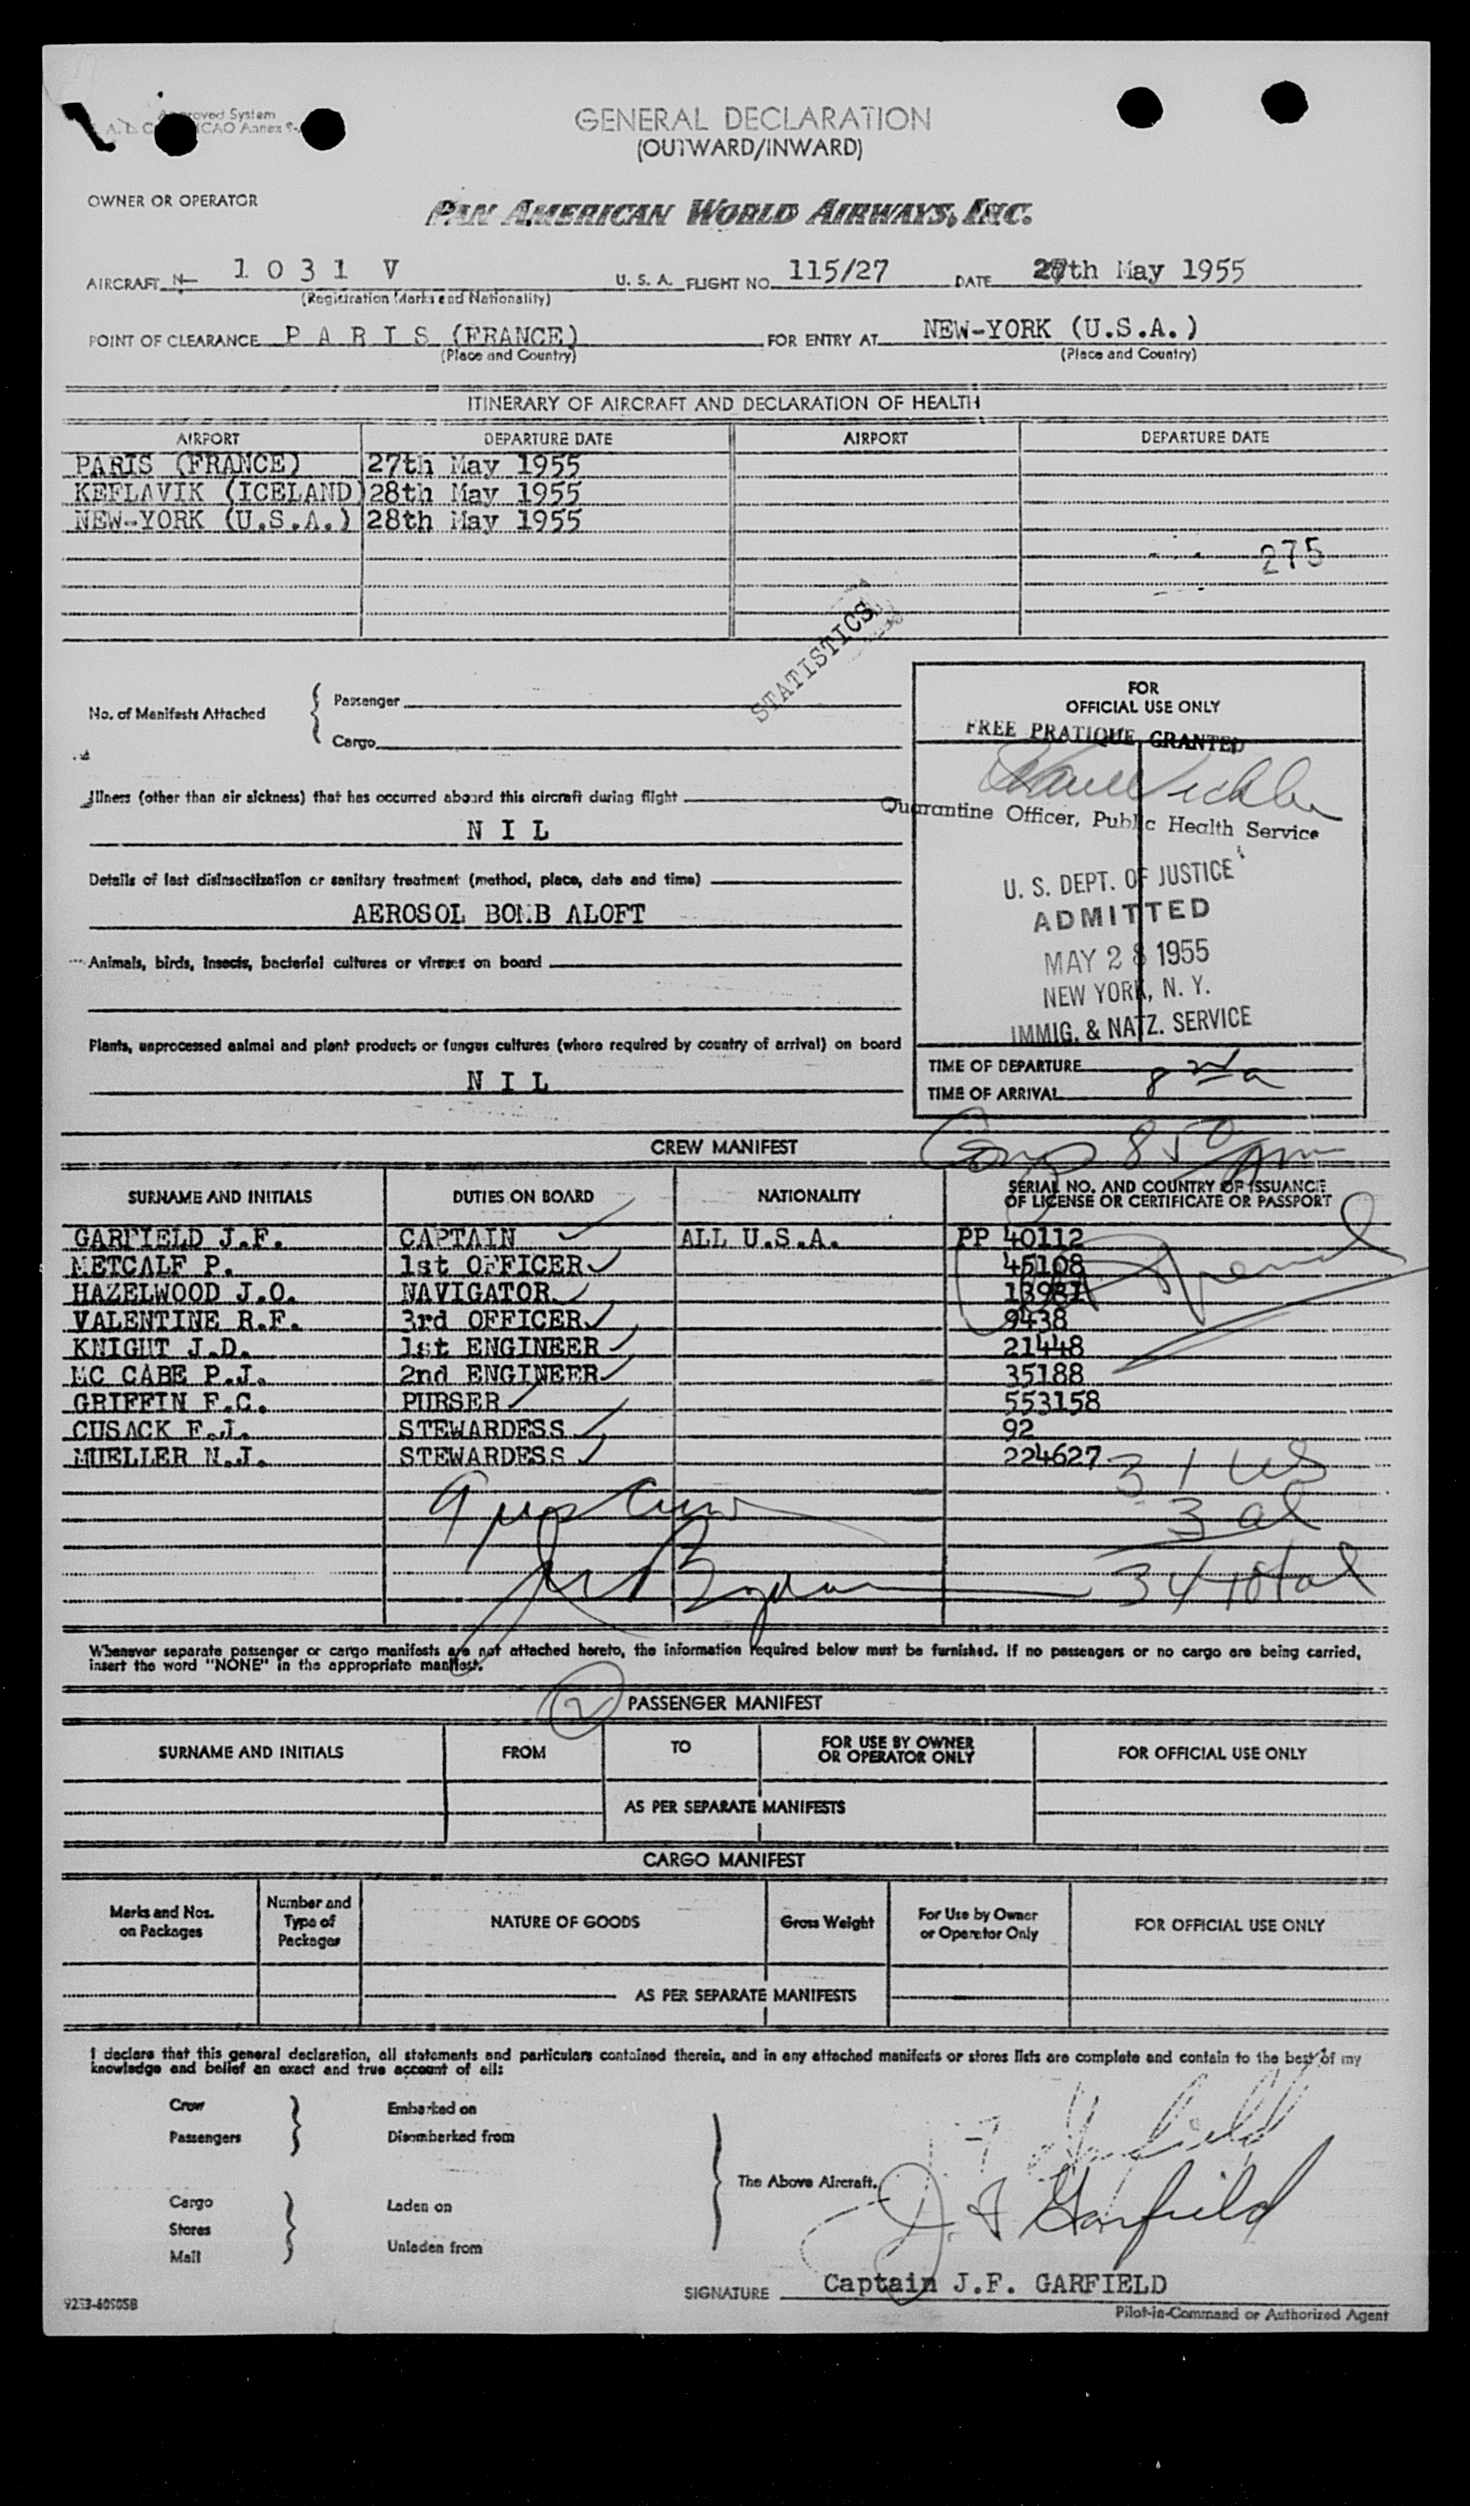 Approved System
GENERAL DECLARATION
(OUTWARD/INWARD)
OWNER OR OPERATOR
PAN AMERICAN WORLD AIRWAYS, INC.
AIRCRAFT N 1 0 3 1 V U. S. A. FLIGHT NO. 115/27 DATE 27th May 1955
(Registration Marks and Nationality)
POINT OF CLEARANCE P A R I S (FRANCE) FOR ENTRY AT NEW-YORK (U.S.A.)
(Place and Country) (Place and Country)
ITINERARY OF AIRCRAFT AND DECLARATION OF HEALTH
AIRPORT DEPARTURE DATE AIRPORT DEPARTURE DATE
PARIS (FRANCE) 27th May 1955
KEFLAVIK (ICELAND) 28th May 1955
NEW-YORK (U.S.A.) 28th May 1955
275
STATISTICS
No. of Manifests Attached
Passenger
Cargo
FOR
OFFICIAL USE ONLY
FREE PRATIQUE GRANTED
Quarantine Officer, Public Health Service
U. S. DEPT. OF JUSTICE
ADMITTED
MAY 28 1955
NEW YORK, N. Y.
IMMIG. & NATZ. SERVICE
TIME OF DEPARTURE
TIME OF ARRIVAL
Illness (other than air sickness) that has occurred aboard this aircraft during flight
N I L
Details of last disinsectization or sanitary treatment (method, place, date and time)
AEROSOL BOMB ALOFT
Animals, birds, insects, bacterial cultures or viruses on board
Plants, unprocessed animal and plant products or fungus cultures (where required by country of arrival) on board
N I L
CREW MANIFEST
SURNAME AND INITIALS DUTIES ON BOARD NATIONALITY SERIAL NO. AND COUNTRY OF ISSUANCE
OF LICENSE OR CERTIFICATE OR PASSPORT
GARFIELD J.F. CAPTAIN ALL U.S.A. PP 40112
METCALF P. 1st OFFICER 45108
HAZELWOOD J.O. NAVIGATOR
VALENTINE R.F. 3rd OFFICER 9438
KNIGHT J.D. 1st ENGINEER 21448
MC CABE P.J. 2nd ENGINEER 35188
GRIFFIN F.C. PURSER 553158
CUSACK F.J. STEWARDESS 92
MUELLER N.J. STEWARDESS 224627
31 US
3 al
34 total
Whenever separate passenger or cargo manifests are not attached hereto, the information required below must be furnished. If no passengers or no cargo are being carried,
insert the word "NONE" in the appropriate manifest.
2
PASSENGER MANIFEST
SURNAME AND INITIALS FROM TO FOR USE BY OWNER
OR OPERATOR ONLY FOR OFFICIAL USE ONLY
AS PER SEPARATE MANIFESTS
CARGO MANIFEST
Marks and Nos.
on Packages
Number and
Type of
Packages
NATURE OF GOODS
Gross Weight
For Use by Owner
or Operator Only
FOR OFFICIAL USE ONLY
AS PER SEPARATE MANIFESTS
I declare that this general declaration, all statements and particulars contained therein, and in any attached manifests or stores lists are complete and contain to the best of my
knowledge and belief an exact and true account of all:
Crew Embarked on
Passengers Disembarked from
The Above Aircraft.
Cargo Laden on
Stores
Mail Unladen from
J. F. Garfield
SIGNATURE Captain J.F. GARFIELD
Pilot-in-Command or Authorized Agent